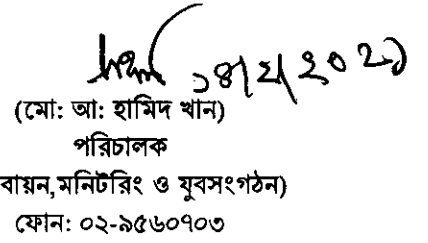 ১৪/২/২০২১
(মো: আ: হামিদ খান)
পরিচালক
বায়ন,মনিটরিং ও যুবসংগঠন)
ফোন: ০২-৯৫৬০৭০৩